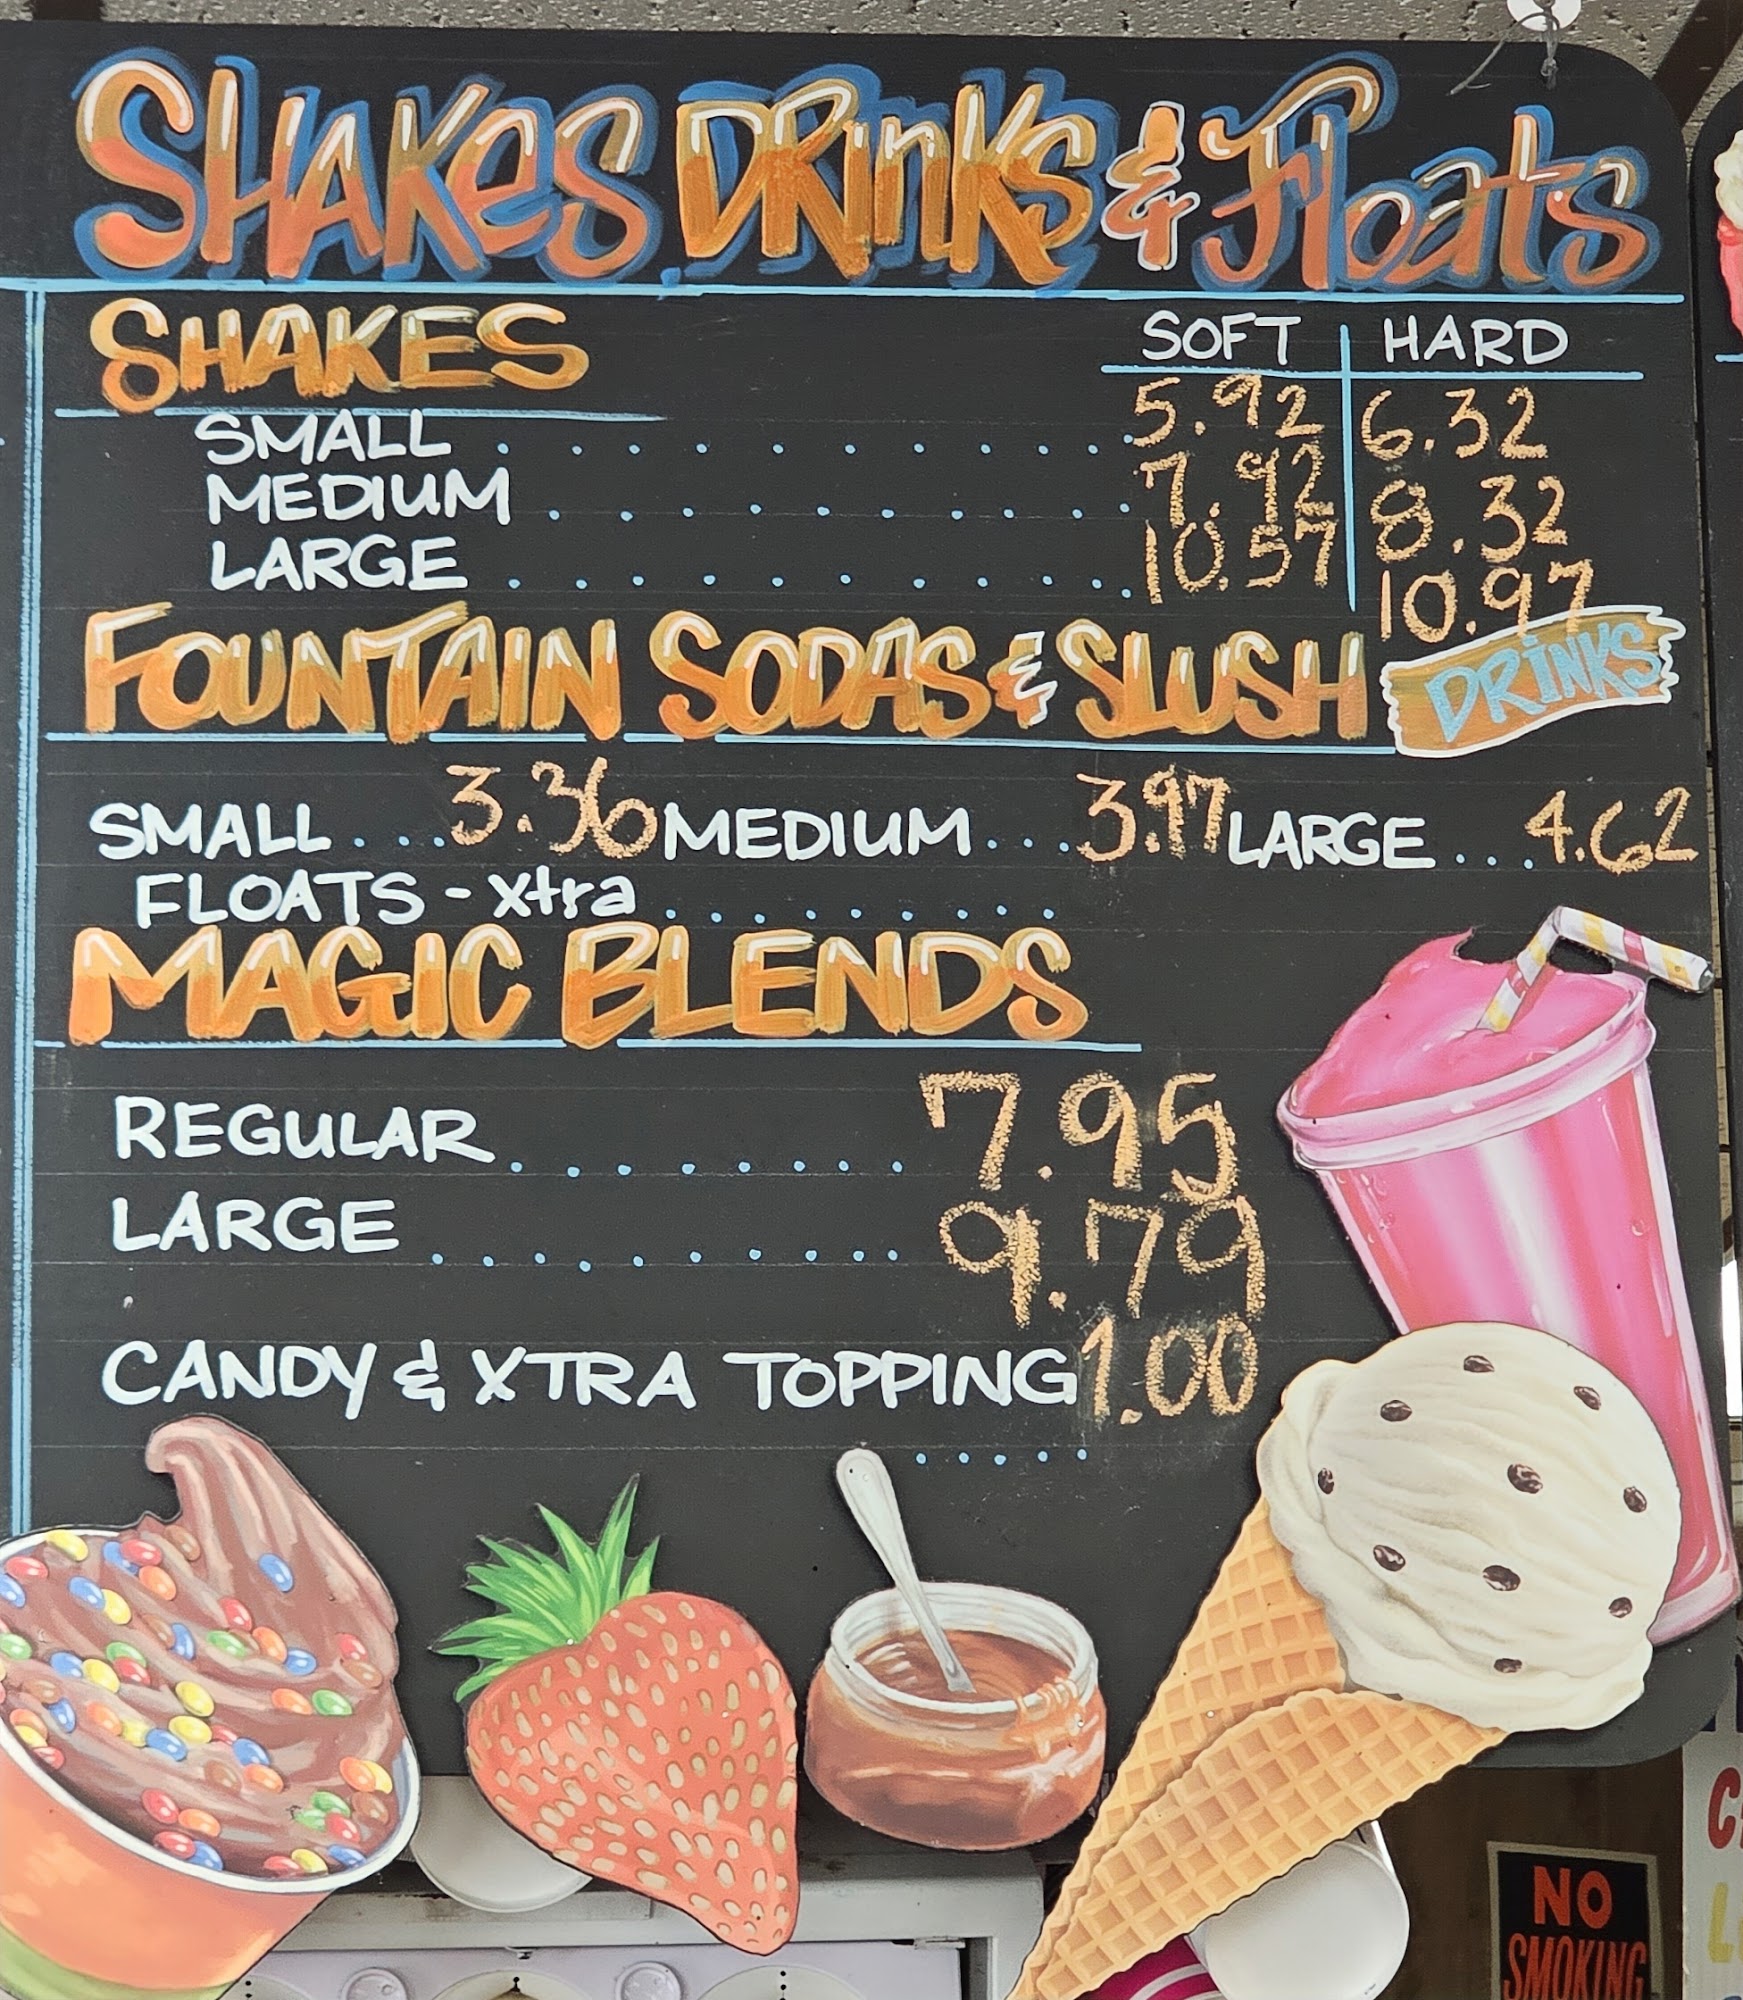 SHAKES, DRINKS & Floats
SHAKES SOFT HARD
SMALL . . . . . . . . . . 5.92 6.32
MEDIUM . . . . . . . . . . 7.92 8.32
LARGE . . . . . . . . . . 10.57 10.97
FOUNTAIN SODAS & SLUSH DRINKS
SMALL . . . . 3.36 MEDIUM . . . 3.97 LARGE . . . . 4.62
FLOATS - Xtra . . . . . . . . . .
MAGIC BLENDS
REGULAR . . . . . . . . 7.95
LARGE . . . . . . . . . . 9.79
CANDY & XTRA TOPPING 1.00
. . . . .
NO
SMOKING